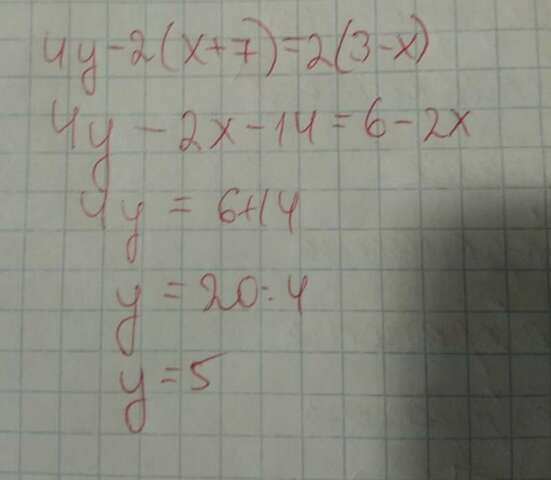 4y-2(x+7)=2(3-x)
4y-2x-14=6-2x
4y=6+14
y=20:4
y=5